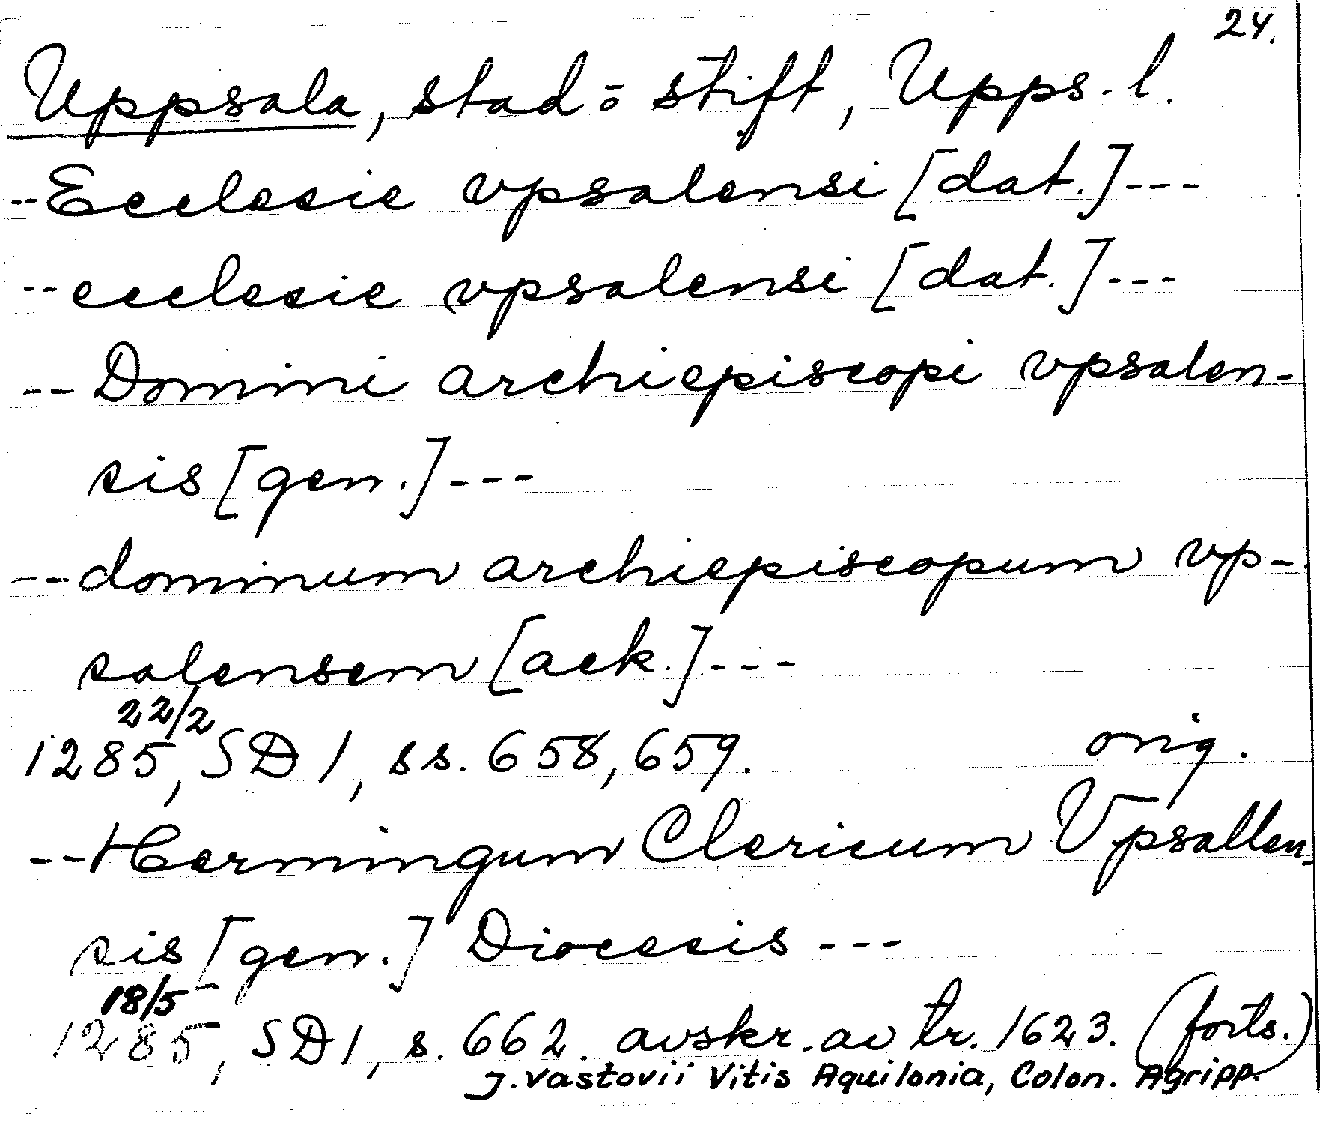 24.
Uppsala, stad o stift, Upps. l.
--Ecclesie vpsalensi [dat.]---
--ecclesie vpsalensi [dat.]---
--Domini archiepiscopi vpsalen-
sis [gen.]---
--dominum archiepiscopum vp-
salensem [ack.]---
22/2
1285, SD 1, ss. 658, 659. orig.
--Hermingum Clericum Vpsallen-
sis [gen.] Diocesis ---
18/5
1285, SD 1, s. 662. avskr. av tr. 1623. (forts.)
J. Vastovii Vitis Aquilonia, Colon. Agripp.